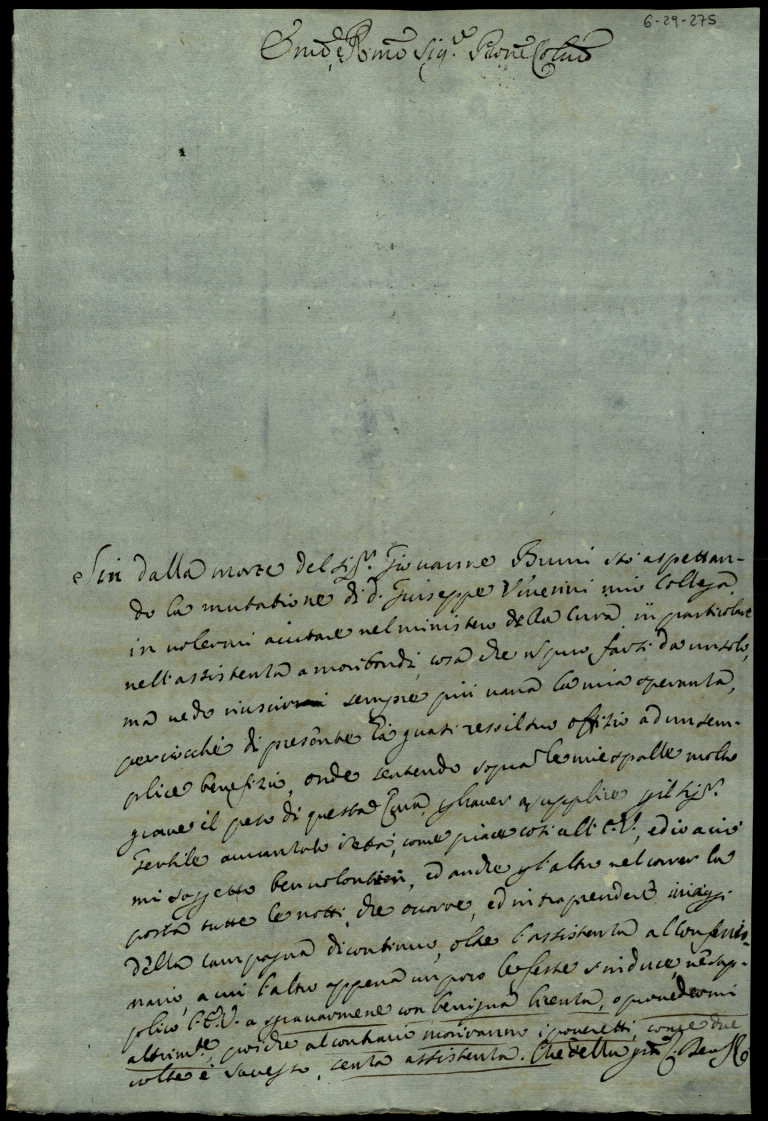 6-29-275
Em.o e R.mo Sig.r Padrone Col.mo
Sin dalla morte del Sig.r Giovanne Bruni sto aspettan-
do la mutatione di D. Guiseppe Vincenti mio Collega,
in volermi aiutare nel ministero della Cura in particolare
nell'assistenza a moribondi, cosa che non può farsi da un solo,
ma vedo riuscirmi sempre più vana la mia speranza,
percioche di presente hà quasi ress il suo offitio ad un sem-
plice benefizio, onde sentendo sopra le mie spalle molto
grave il peso di questa Cura, per haver a supplire per il Sig.r
Gentile avanzato d'età, come piace così all'E.V., ed io a ciò
mi soggetto ben volontieri, ed anche per l'altro nel correr la
posta tutte le notti, che occorre, ed intraprendere i viaggi
della campagna di continuo, oltre l'assistenza al Confessio-
nario, a cui l'altro appena un poco le feste s'induce, ne sup-
plico l'E.V. a sgravarmene con benigna licenza, o provedermi
altrim.te, poiche al contrario morivanno i poveretti, come due
volte è successo, senza assistenza. Che della gra.